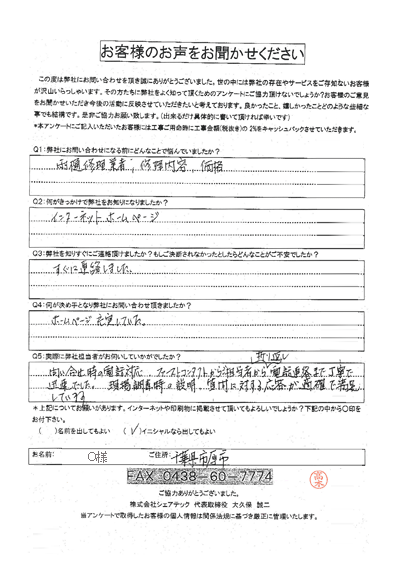 お客様のお声をお聞かせください
この度は弊社にお問い合わせを頂き誠にありがとうございました。世の中には弊社の存在やサービスをご存知ないお客様
が沢山いらっしゃいます。その方たちにも弊社をよく知って頂くためのアンケートにご協力頂けないでしょうか？お客様のご意見
をお聞かせいただき今後の活動に反映させていただきたいと考えております。良かったこと、嬉しかったことどのような些細な
事でも結構です。是非ご協力お願い致します。（出来るだけ具体的に書いて頂ければ幸いです）
*本アンケートにご記入いただいたお客様には工事ご用命時に工事金額(税抜き)の2%をキャッシュバックさせていただきます。
Q1：弊社にお問い合わせになる前にどんなことで悩んでいましたか？
雨樋修理業者，修理内容，価格
Q2：何がきっかけで弊社をお知りになりましたか？
インターネットホームページ
Q3：弊社を知りすぐにご連絡頂けましたか？もしご決断されなかったとしたらどんなことがご不安でしたか？
すぐに連絡しました。
Q4：何が決め手となり弊社にお問い合わせ頂きましたか？
ホームページ充実していた。
Q5：実際に弊社担当者がお伺いしていかがでしたか？
折り返し
問い合せ時の電話対応 ファーストコンタクトから担当者から電話連絡まで丁寧で
迅速でした。現場調査時の説明、質問に対する応答が適確で満足
しています
＊上記についてお願いがあります。インターネットや印刷物に掲載させて頂いてもよろしいでしょうか？下記の中から〇印を
お付下さい。
（　）名前を出してもよい　（✓）イニシャルなら出してもよい
お名前： 〇様 ご住所： 千葉県市原市
FAX 0438-60-7774
ご協力ありがとうございました。
株式会社シェアテック 代表取締役 大久保 誠二
当アンケートで取得したお客様の個人情報は関係法規に基づき厳正に管理いたします。